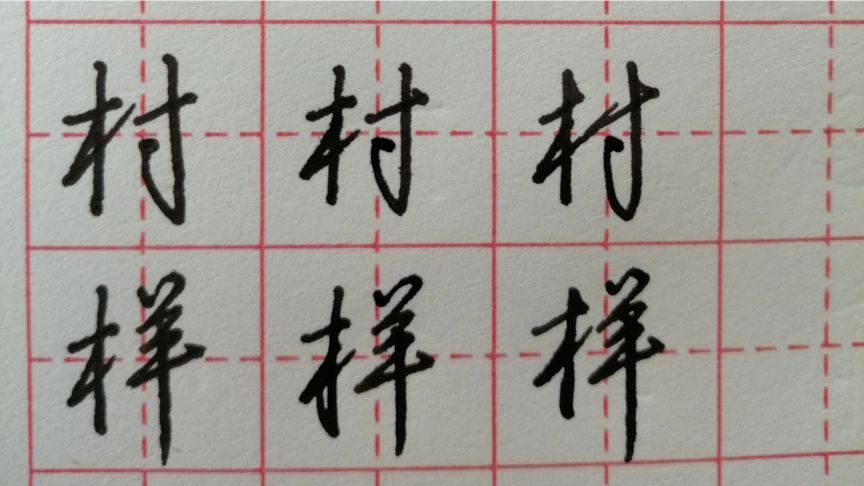 村村村
样样样